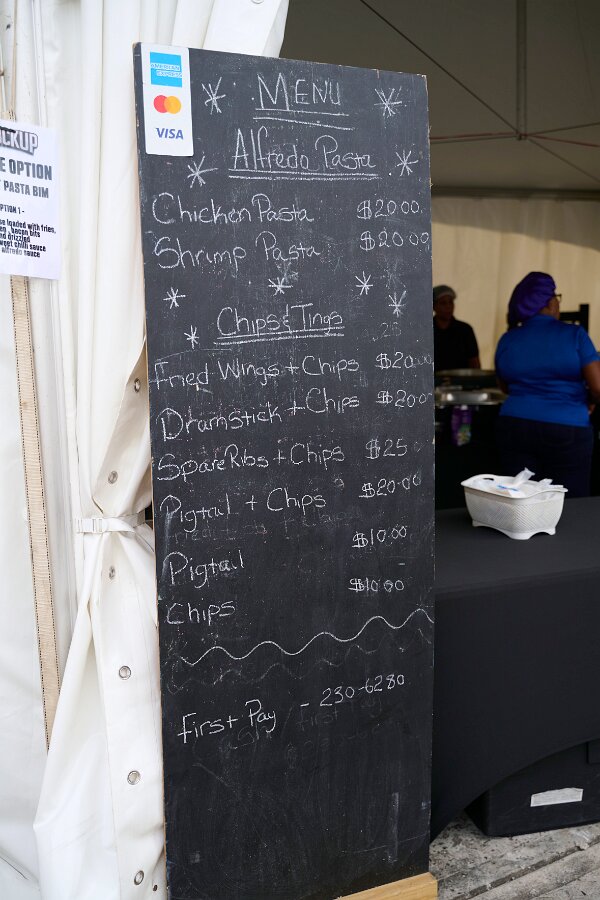 AMERICAN EXPRESS
VISA
MENU
Alfredo Pasta
Chicken Pasta $20.00
Shrimp Pasta $20.00
Chips & Tings
Fried Wings + Chips $20.00
Drumstick + Chips $20.00
Spare Ribs + Chips $25.00
Pigtail + Chips $20.00
Pigtail $10.00
Chips $10.00
First Pay - 230-6280
E OPTION
PASTA BIM
PTION 1 -
loaded with fries,
bacon bits
drizzled
sweet chilli sauce
alfredo sauce